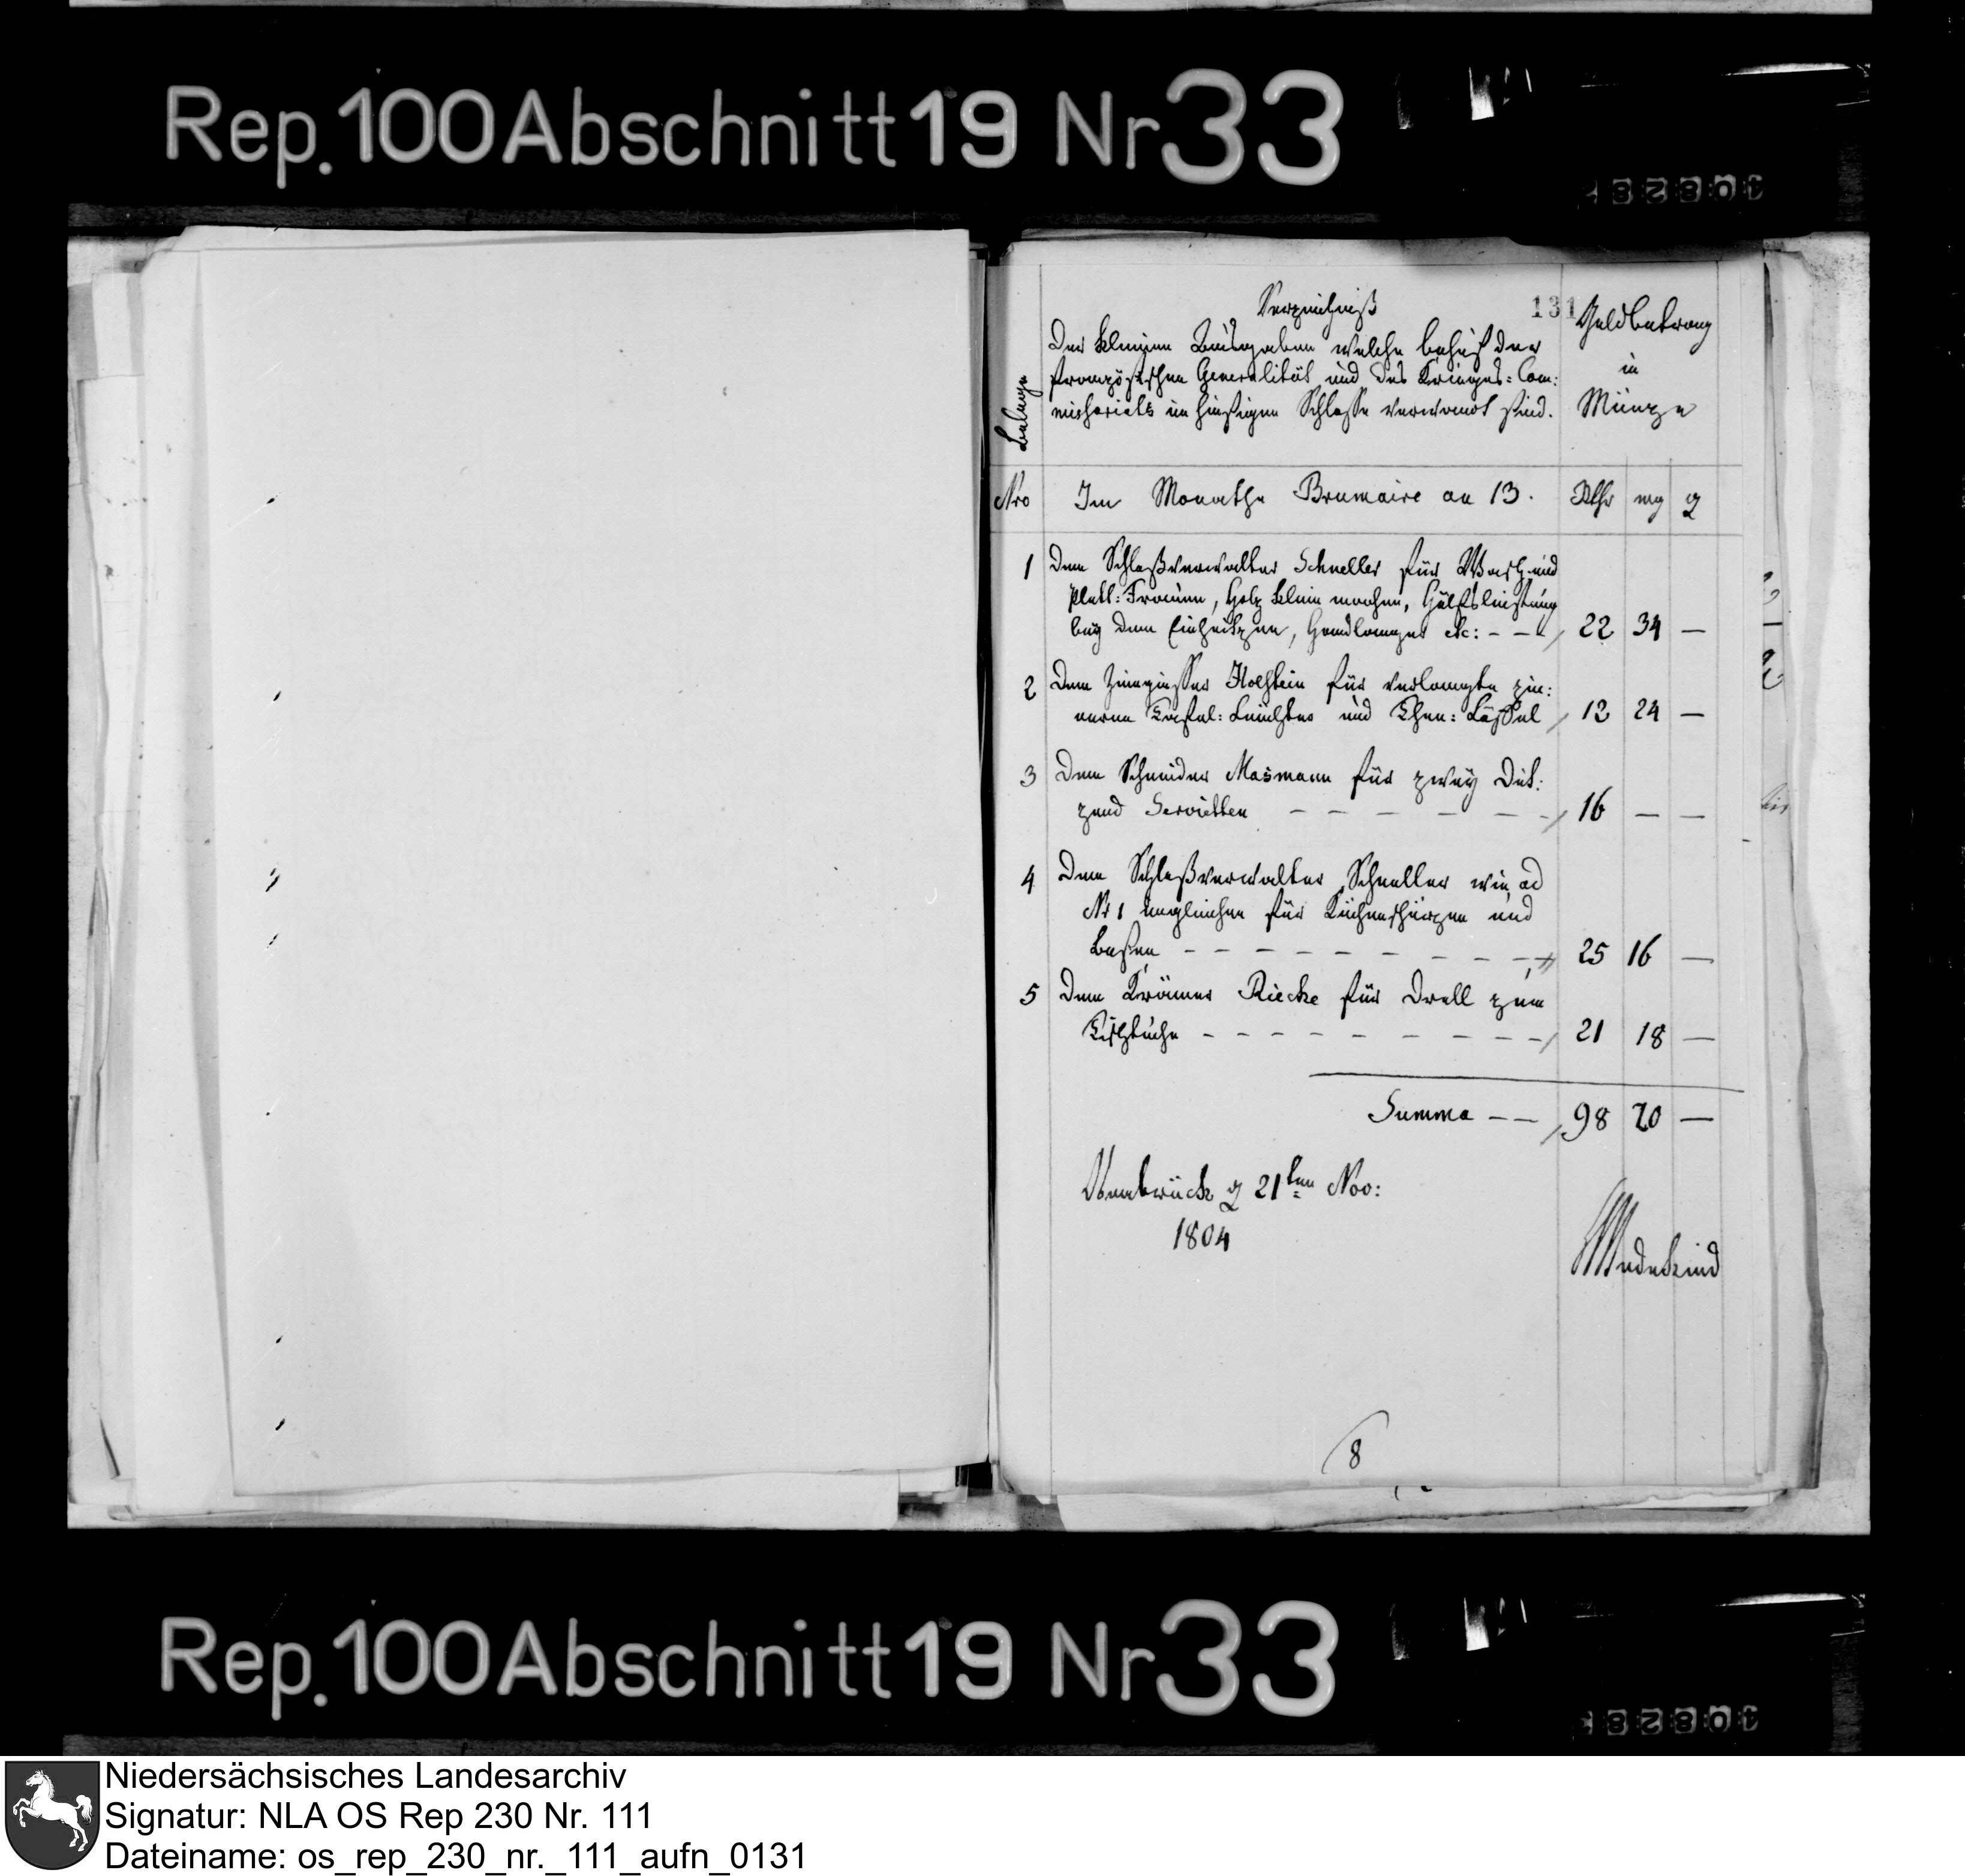 Rep. 100 Abschnitt 19 Nr 33
131
Verzeichniß
Der kleinen Ausgaben welche behuf der
französischen Generalität und des Krieges-Com:
missariats im hiesigen Schlosse verwandt sind.
Geldbetrag
in
Münze
Belege
Nro Im Monathe Brumaire an 13. Rthr mg ₰
1 Dem Schloßverwalter Schneller für Wasch und
Plett: Frauen, Holz klein machen, Hülfsleistung
bey dem Einheitzen, Handlanger etc: - - - 22 34 —
2 Dem Zinngiesser Holstein für verlangte zin:
nerne Tafel: Leuchter und Thee: Löffel 12 24 —
3 Dem Schneider Masmann für zwey Dut:
zend Servietten - - - - - - - 16 — —
4 Dem Schloßverwalter Schneller wie ad
Nr 1 imgleichen für Küchenschürzen und
Besen - - - - - - - - - - 25 16 —
5 Dem Krämer Riecke für Drell zum
Tischtuche - - - - - - - - - 21 18 —
Summa - - 98 20 —
Osnabrück ₰ 21ten Nov:
1804
Wedekind
8
Rep. 100 Abschnitt 19 Nr 33
Niedersächsisches Landesarchiv
Signatur: NLA OS Rep 230 Nr. 111
Dateiname: os_rep_230_nr._111_aufn_0131